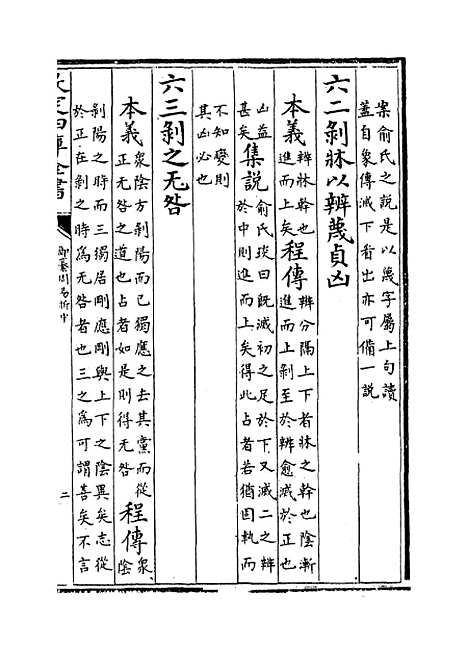 案俞氏之說是以蔑字屬上句讀
蓋自象傳滅下看出亦可備一說
六二剝牀以辨蔑貞凶
本義辨牀幹也進而上矣程傳辨分隔上下者牀之幹也陰漸進而上剝至於辨愈滅於正也
凶益甚矣集說俞氏琰曰既滅初之足於下又滅二之辨於中則進而上矣得此占者若猶固執而
不知變則其凶必也
六三剝之无咎
本義衆陰方剝陽而已獨應之去其黨而從正无咎之道也占者如是則得无咎程傳衆陰
剝陽之時而三獨居剛應剛與上下之陰異矣志從
於正在剝之時為无咎者也三之為可謂善矣不言
欽定四庫全書
御纂周易折中
二